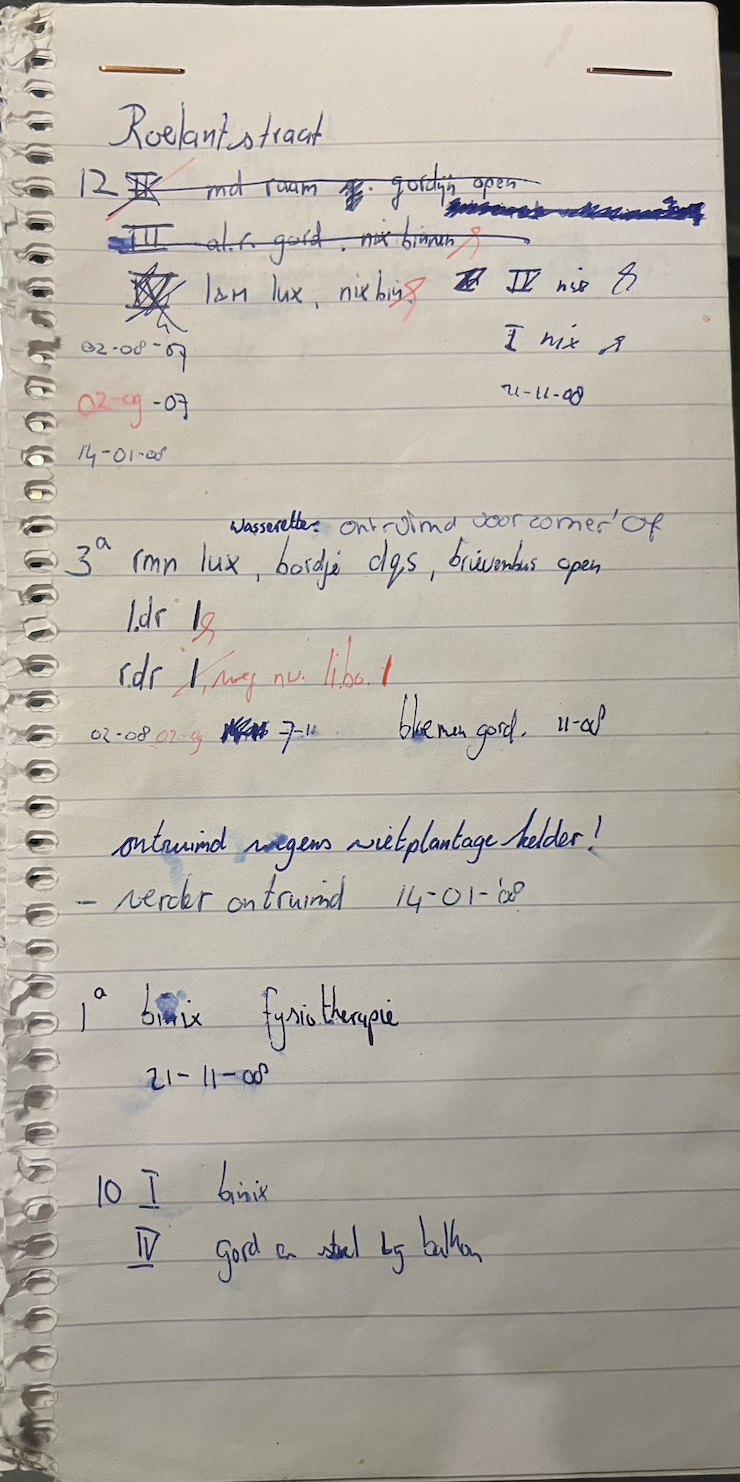 Roelantstraat
12 II md raam gordijn open
III al.r. gord, nix binnen
IV lam lux, nix bin. IV nix
02-08-07 I nix
02-09-07 21-11-08
14-01-08
Wasserette: ontruimd voor corner of
3a rmn lux, bordje dqs, brievenbus open
l.dr 1
r.dr 1, weg nu. libo. 1
02-08 02-9 7-11 bloemen gord. 11-08
ontruimd wegens wietplantage kelder!
- verder ontruimd 14-01-'08
1a binix fysiotherapie
21-11-08
10 I binix
IV gord en stoel bij balkon